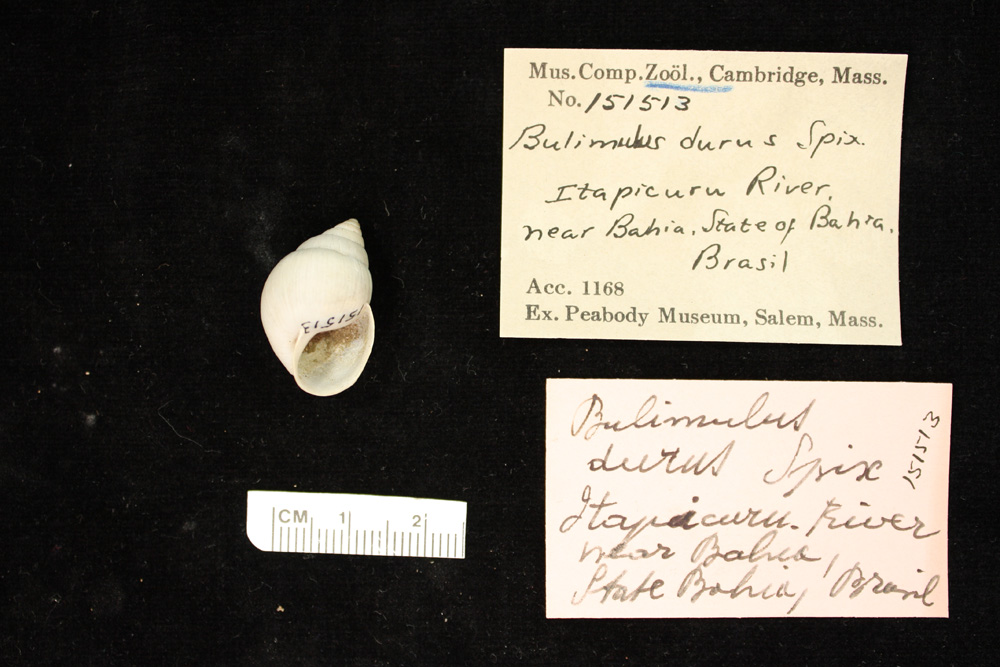 Mus. Comp. Zoöl., Cambridge, Mass.
No. 151513
Bulimulus durus Spix.
Itapicuru River,
near Bahia, State of Bahia.
Brasil
Acc. 1168
Ex. Peabody Museum, Salem, Mass.
151513
CM 1 2
Bulimulus
durus Spix
Itapicuru River
near Bahia,
State Bahia, Brasil
151513